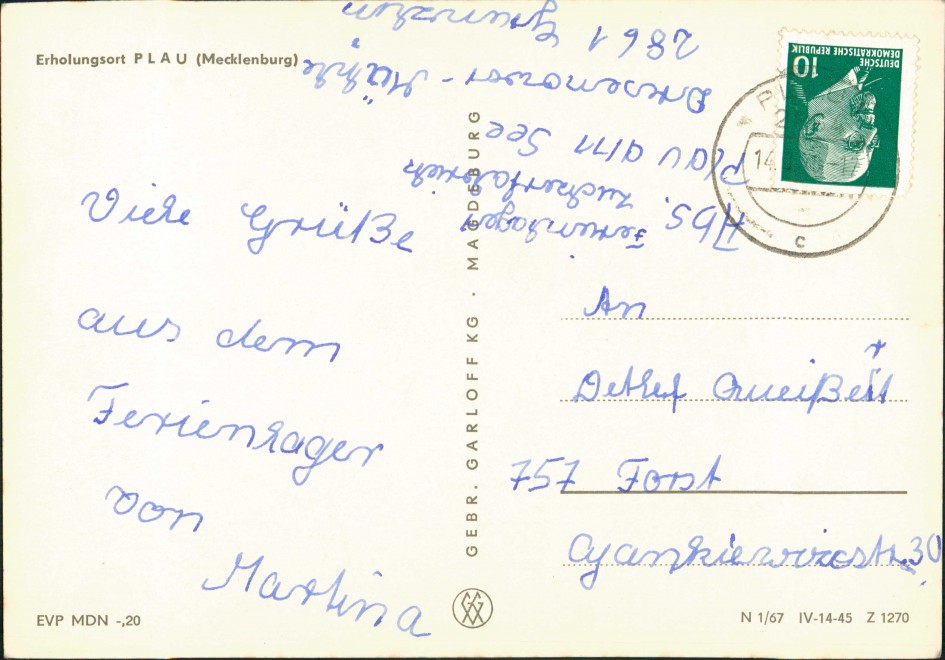 Erholungsort PLAU (Mecklenburg)
Viele Grüße
aus dem
Ferienlager
von
Martina
EVP MDN -,20
GEBR. GARLOFF KG · MAGDEBURG
Abs. Ferienlager
Zuckerfabrik
Plau am See
2861
DEUTSCHE
DEMOKRATISCHE REPUBLIK
10
PLAU
14
c
An
Detlef
757 Forst
30
N 1/67 IV-14-45 Z 1270